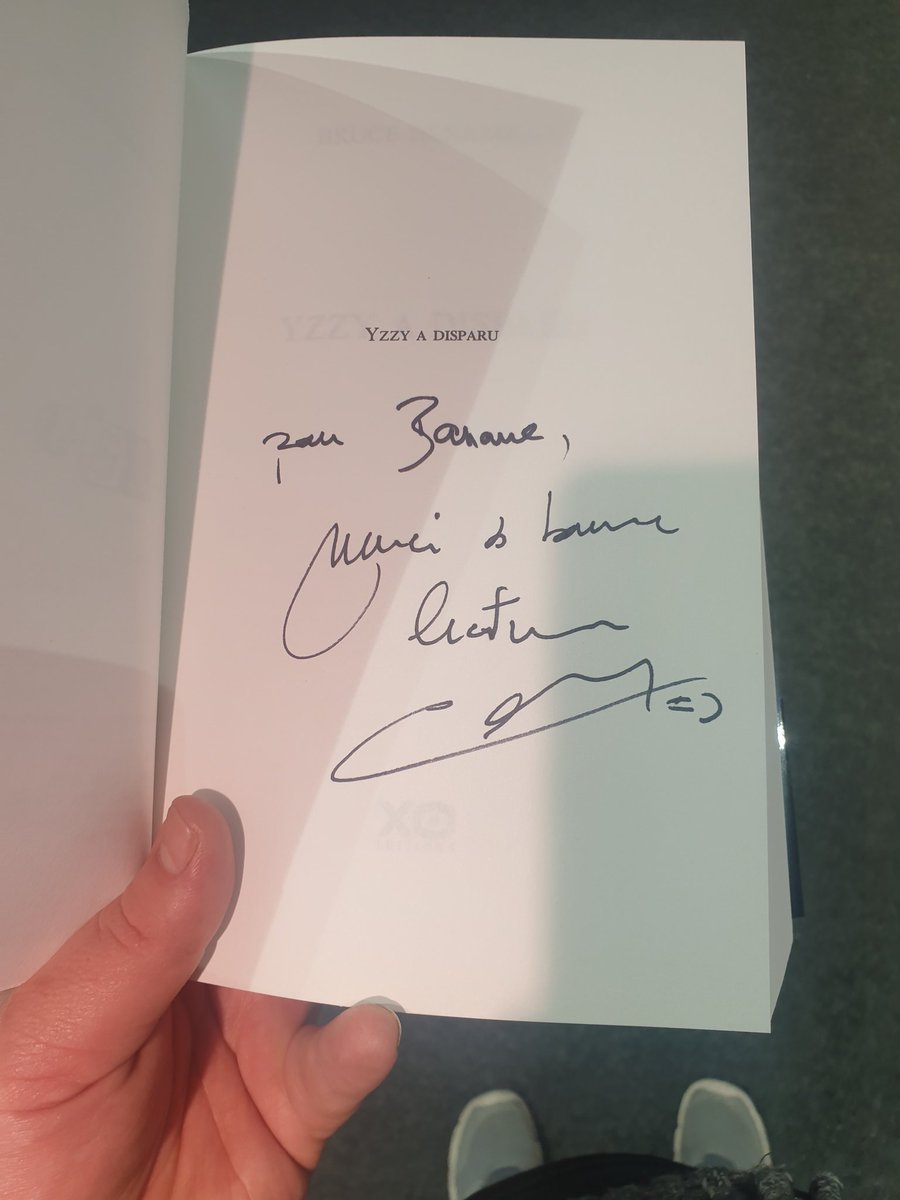 YZZY A DISPARU
pour Banane,
Merci & bonne
lecture
=)